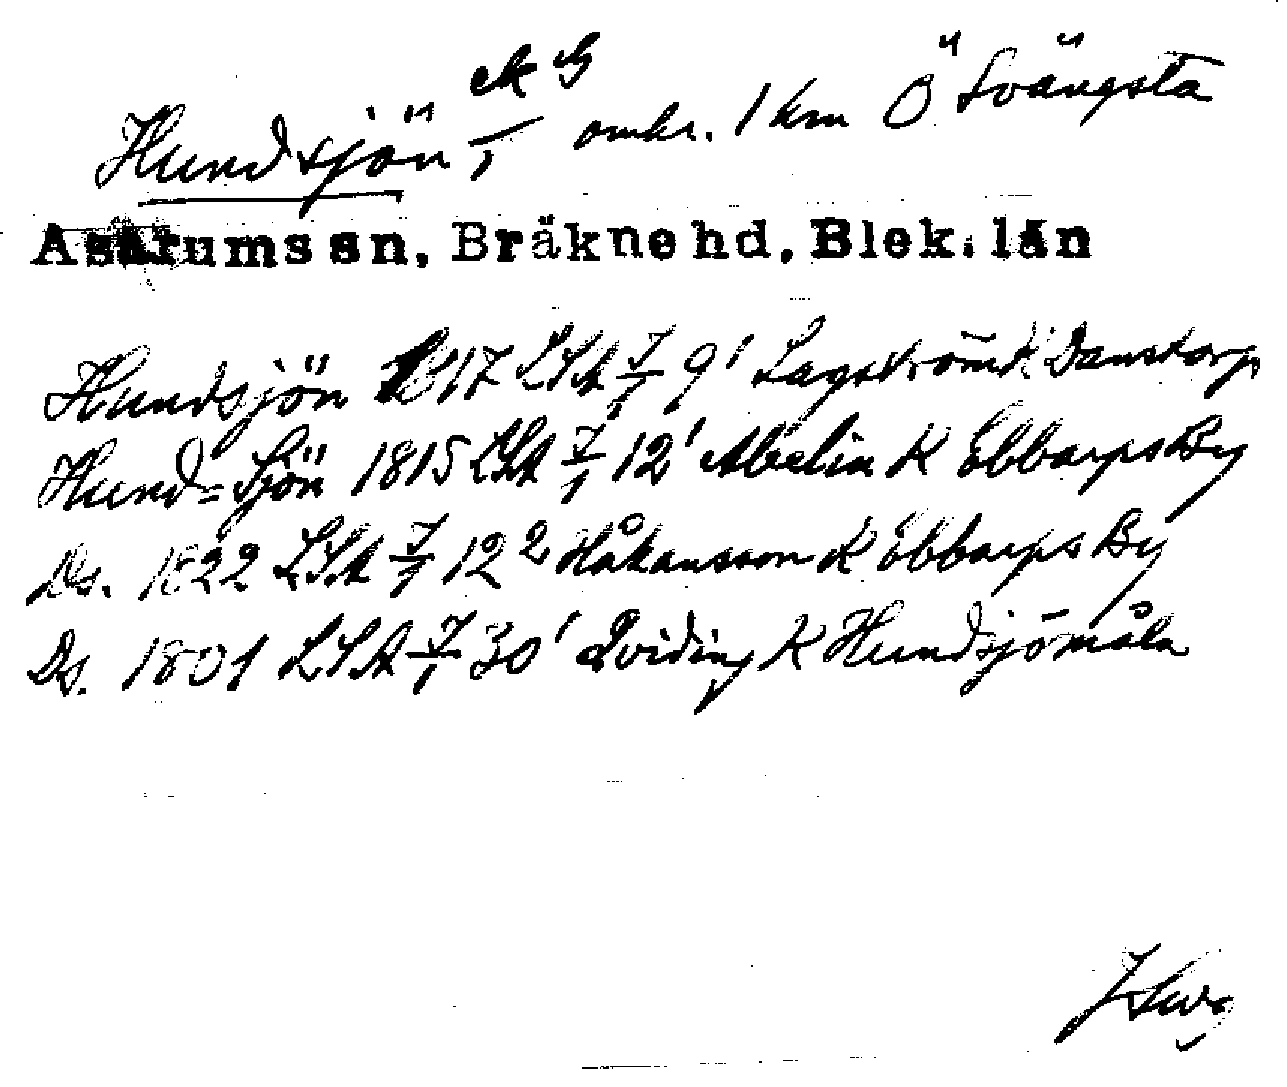 Hundsjön omkr. 1 km Ö Svängsta
Asarums sn, Bräkne hd, Blek. län
Hundsjön 1817 LSA 7/1 9' Lagström K Danstorp
Hund=Sjön 1815 LSA 7/1 12' Abelin K Ebbarps By
Ds. 1822 LSA 7/1 12² Håkansson K Ebbarps By
Ds. 1801 LSA 7/1 30' Qviding K Hundsjömåla